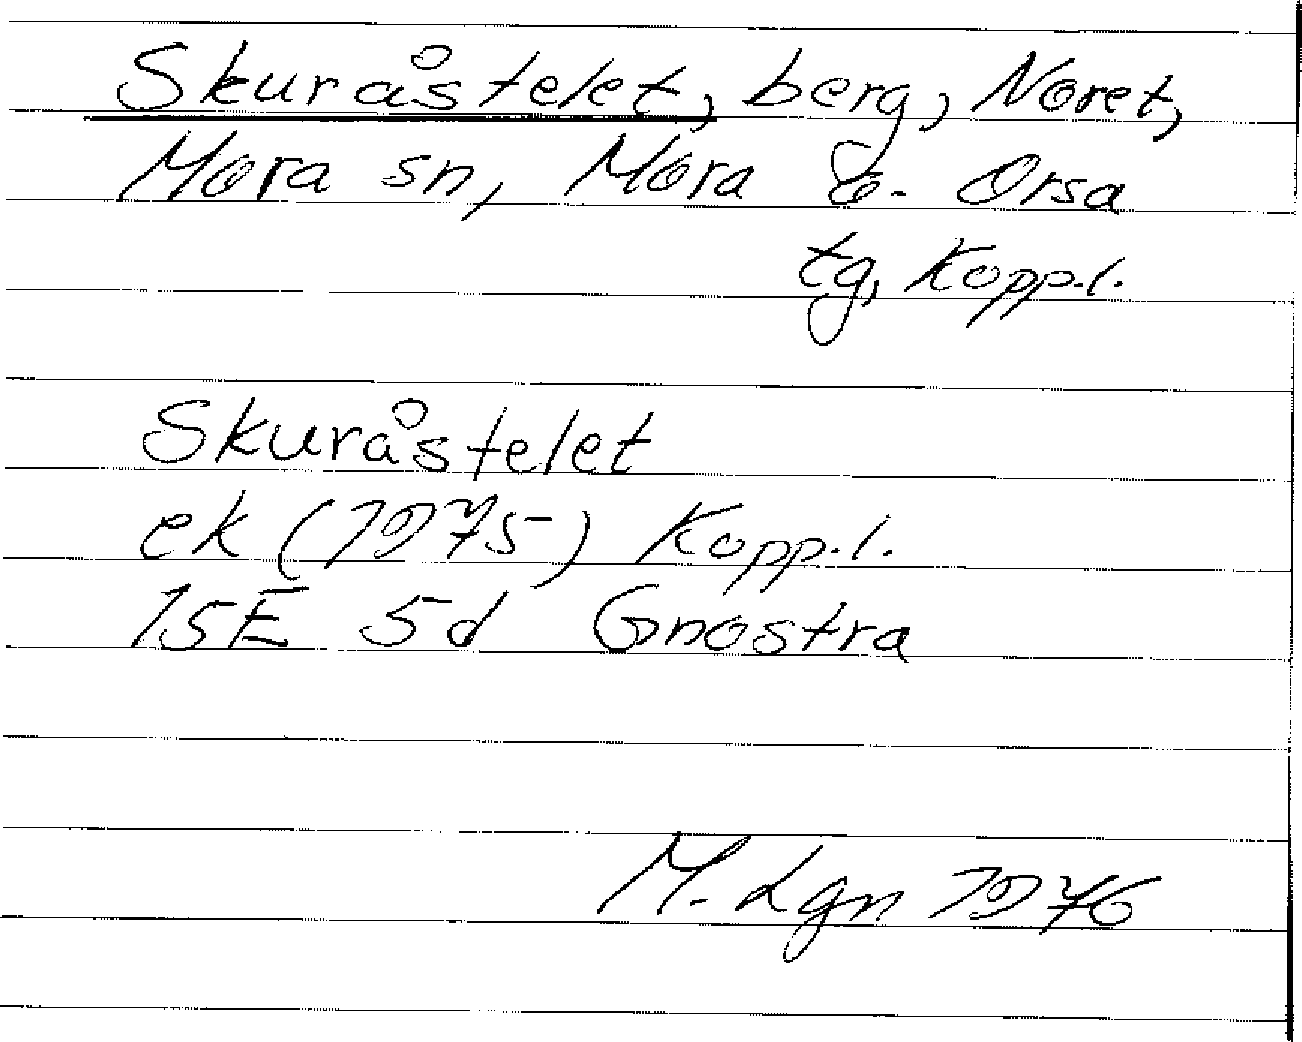 Skuråstelet, berg, Noret,
Mora sn, Mora o. Orsa
tg, Kopp.l.
Skuråstelet
ek (1975) Kopp.l.
15E 5d Gnostra
M. Lgn 1976